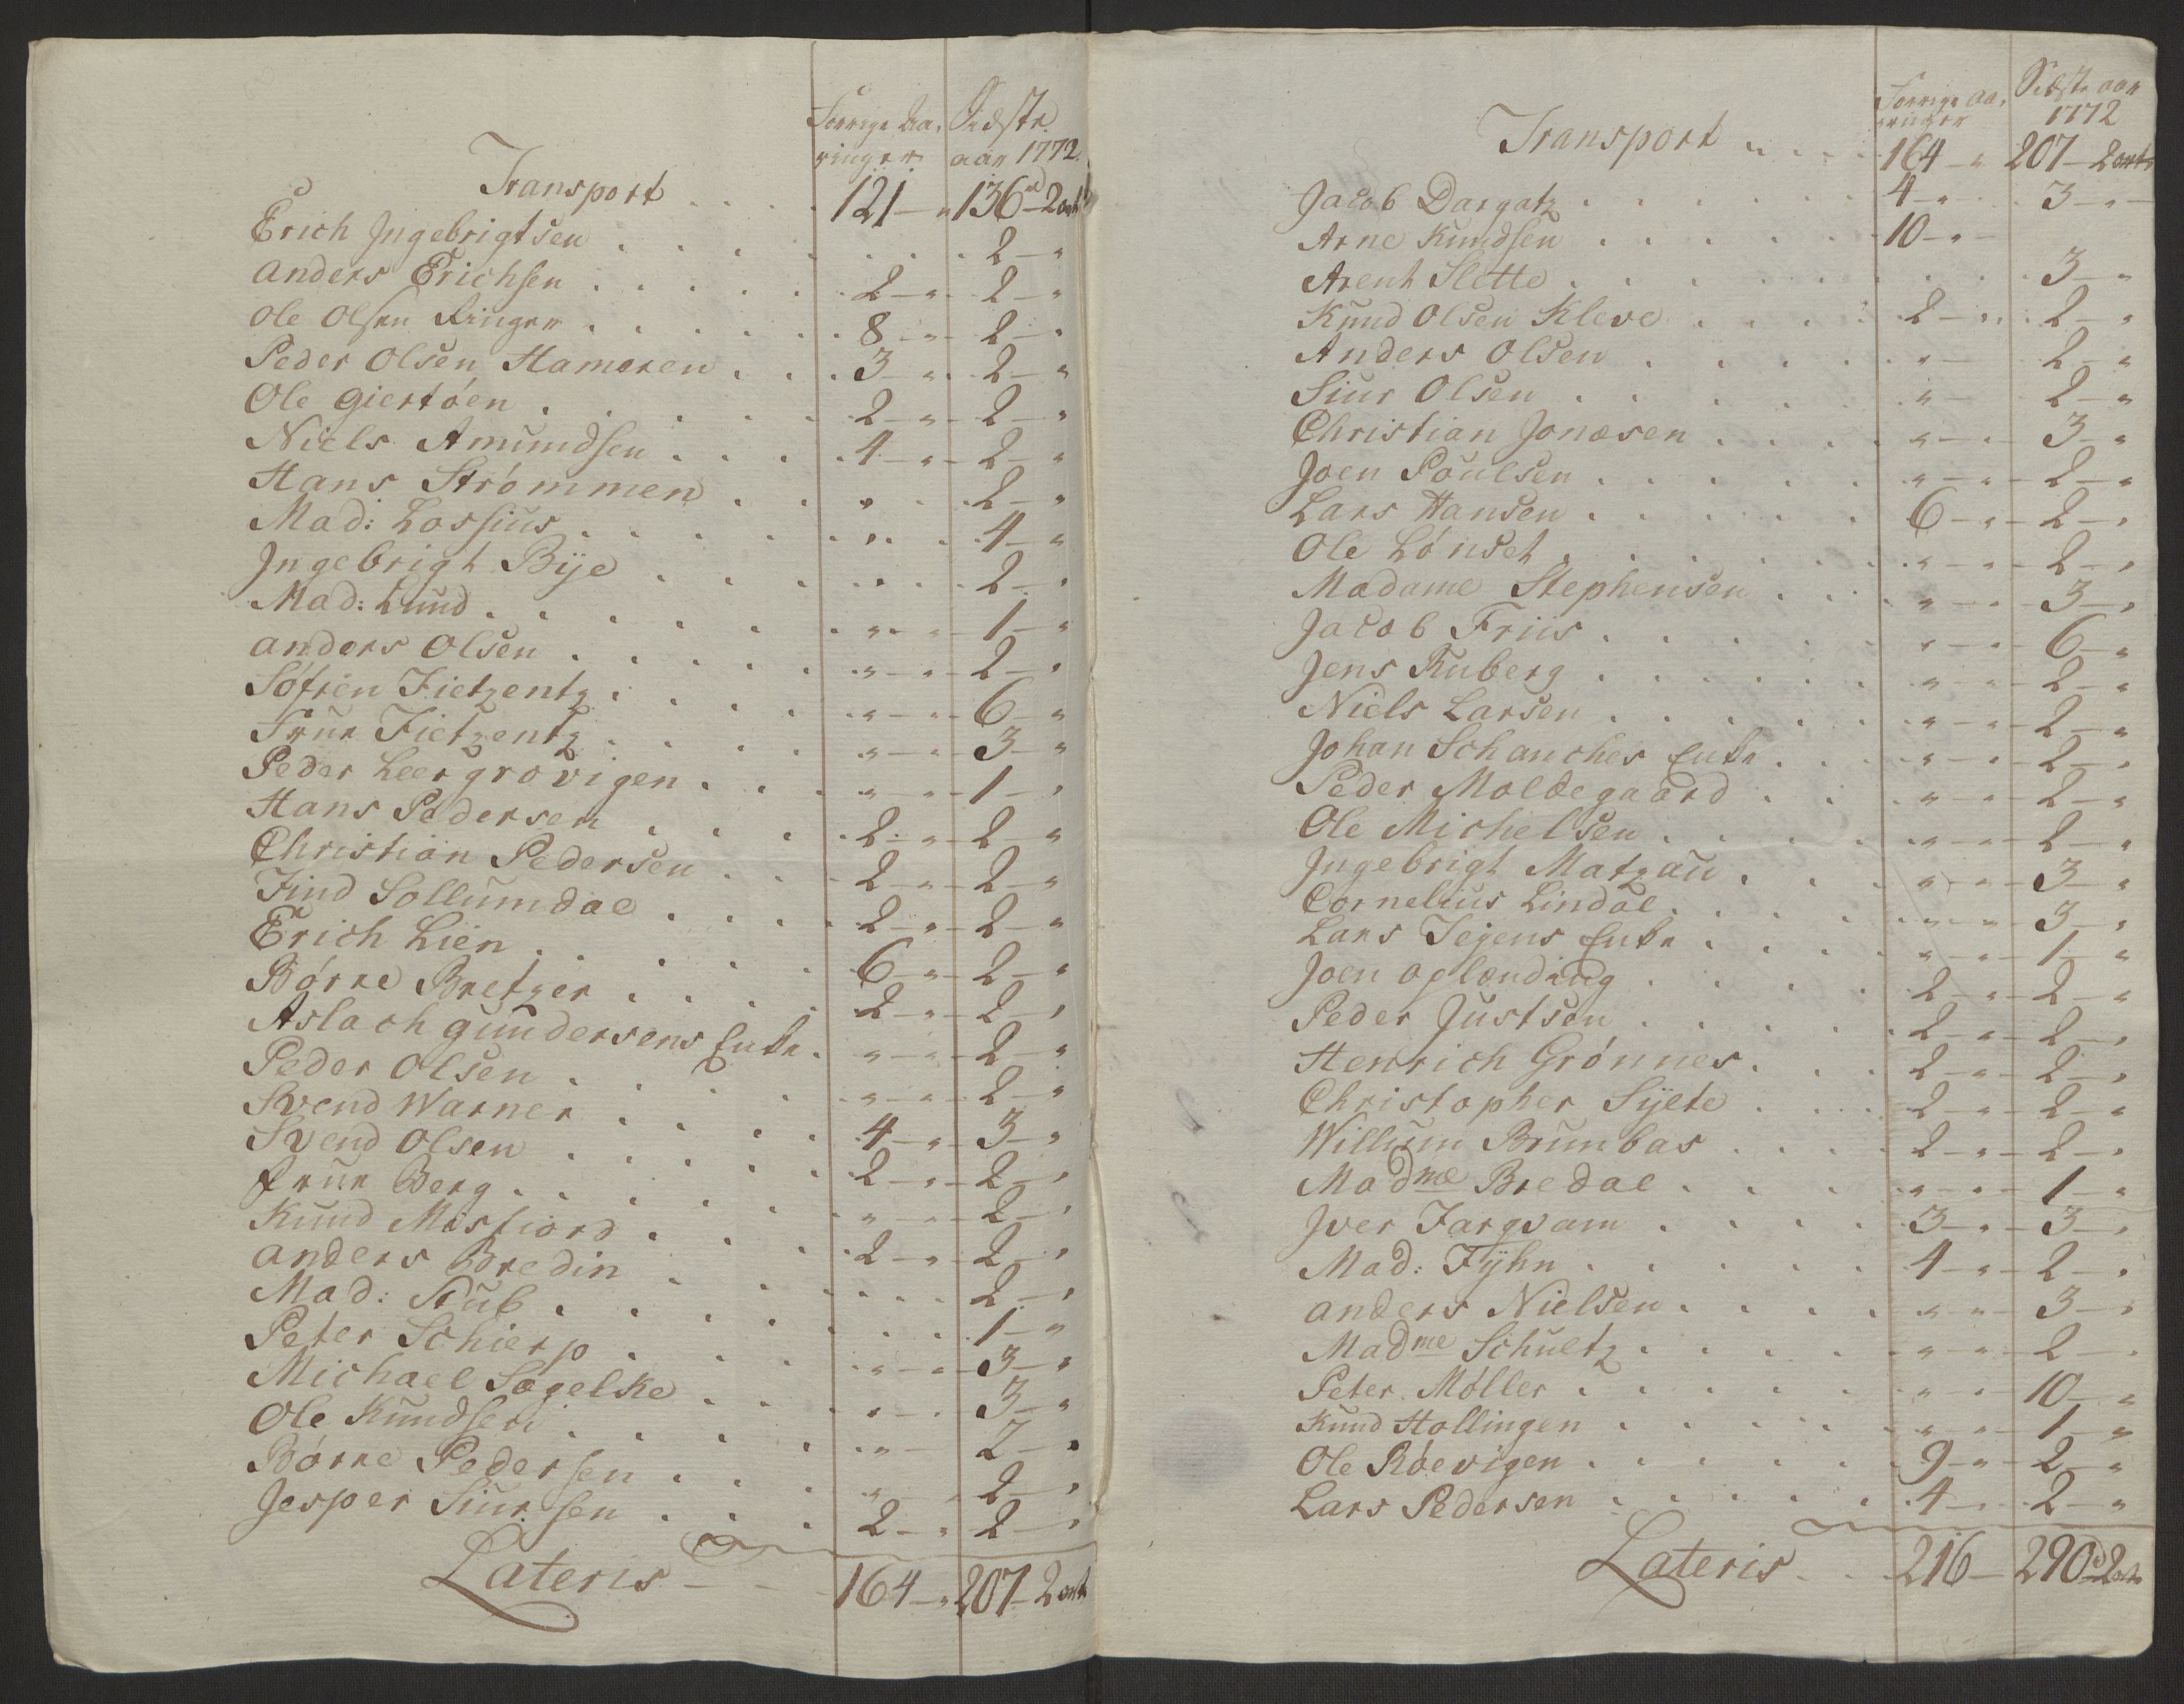 Forrige Aa, Sidste
ringer aar 1772
Transport . . . . 121 — " 136 rd — 2 ort
Erich Ingebrigtsen . . . . . . . 2 — "
Anders Erichsen . . . . . 2 — " 2 — "
Ole Olsen Ringer . . . . . 8 — " 2 — "
Peder Olsen Hameren . . . 3 — " 2 — "
Ole Giertøen . . . . . 2 — " 2 — "
Niels Amundsen . . . . 4 — " 2 — "
Hans Strømmen . . . " . 2 — "
Mad: Lossius . . . . . " . 4 — "
Ingebrigt Bije . . . . " . 2 — "
Mad: Lund . . . . . . " — " 1 — "
Anders Olsen . . . . . " — " 2 — "
Søfren Fietzentz . . . . " — " 6 — "
Frue Fietzentz . . . . " — " 3 — "
Peder Leergrovigen . . . " — " 1 — "
Hans Pedersen . . . . 2 — " 2 — "
Christian Pedersen . . . 2 — " 2 — "
Find Sollumdal . . . . 2 — " 2 — "
Erich Lien . . . . . 6 — " 2 — "
Børre Bretzer . . . . 2 — " 2 — "
Aslach Gundersens Enke . " — " 2 — "
Peder Olsen . . . . . " — " 2 — "
Svend Warner . . . . 4 — " 3 — "
Svend Olsen . . . . . 2 — " 2 — "
Frue Berg . . . . . . " — " 2 — "
Knud Misfiord . . . . 2 — " 2 — "
Anders Bredin . . . . . . 2 — "
Mad: Stub . . . . . . . 1 — "
Peter Schierp . . . . " — " 3 — "
Michael Søgelke . . . " — 3 — "
Ole Knudsen . . . . . " — 2 — "
Børre Pedersen . . . " — 2 — "
Jesper Siursen . . . 2 — " 2 — "
Lateris — — 164 — " 207 — 2 ort
Forrige Aa, Sidste aar
ringer 1772
Transport . . . . 164 — " 207 — 2 ort
Jacob Dargatz . . . . . . 4 — " . 3 — "
Arne Knudsen . . . . . . 10 — "
Arent Slette . . . . . . . . 3 — "
Knud Olsen Kleve . . . . 2 — " 2 — "
Anders Olsen . . . . . " — 2 — "
Siur Olsen . . . . . . " — 2 — "
Christian Jonæsen . . . . " — " 3 — "
Joen Poulsen . . . . . " — " 2 — "
Lars Hansen . . . . . 6 — " 2 — "
Ole Lønset . . . . . . " — " 2 — "
Madame Stephensen . . . " — " 3 — "
Jacob Friis . . . . . " — " 6 — "
Jens Ruberg . . . . . " — " 2 — "
Niels Larsen . . . . . " — " 2 — "
Johan Schanches Enke . . . " — " 2 — "
Peder Moldegaard . . . " — " 2 — "
Ole Michelsen . . . . " — " 2 — "
Ingebrigt Matzau . . . " — " 3 — "
Cornelius Lindal . . . . " — " 3 — "
Lars Tejens Enke . . . . " — " 1 — "
Joen Oplænding . . . . 2 — " 2 — "
Peder Justsen . . . . . 2 — " 2 — "
Henrich Grønnes . . . 2 — " 2 — "
Christopher Sylte . . . 2 — " 2 — "
Willum Brunbas . . . . 2 — " 2 — "
Madme Bredal . . . . " — " 1 — "
Iver Fargvam . . . . 3 — " 3 — "
Mad: Fyhn . . . . . 4 — " 2 — "
Anders Nielsen . . . . " — " 3 — "
Madme Schultz . . . . " — " 2 — "
Peter Møller . . . . . " — " 10 — "
Knud Hollingen . . . . . " — " 1 — "
Ole Røevigen . . . . . 9 — " 2 — "
Lars Pedersen . . . . . 4 — " 2 — "
Lateris . . 216 — 290 rd — 2 ort